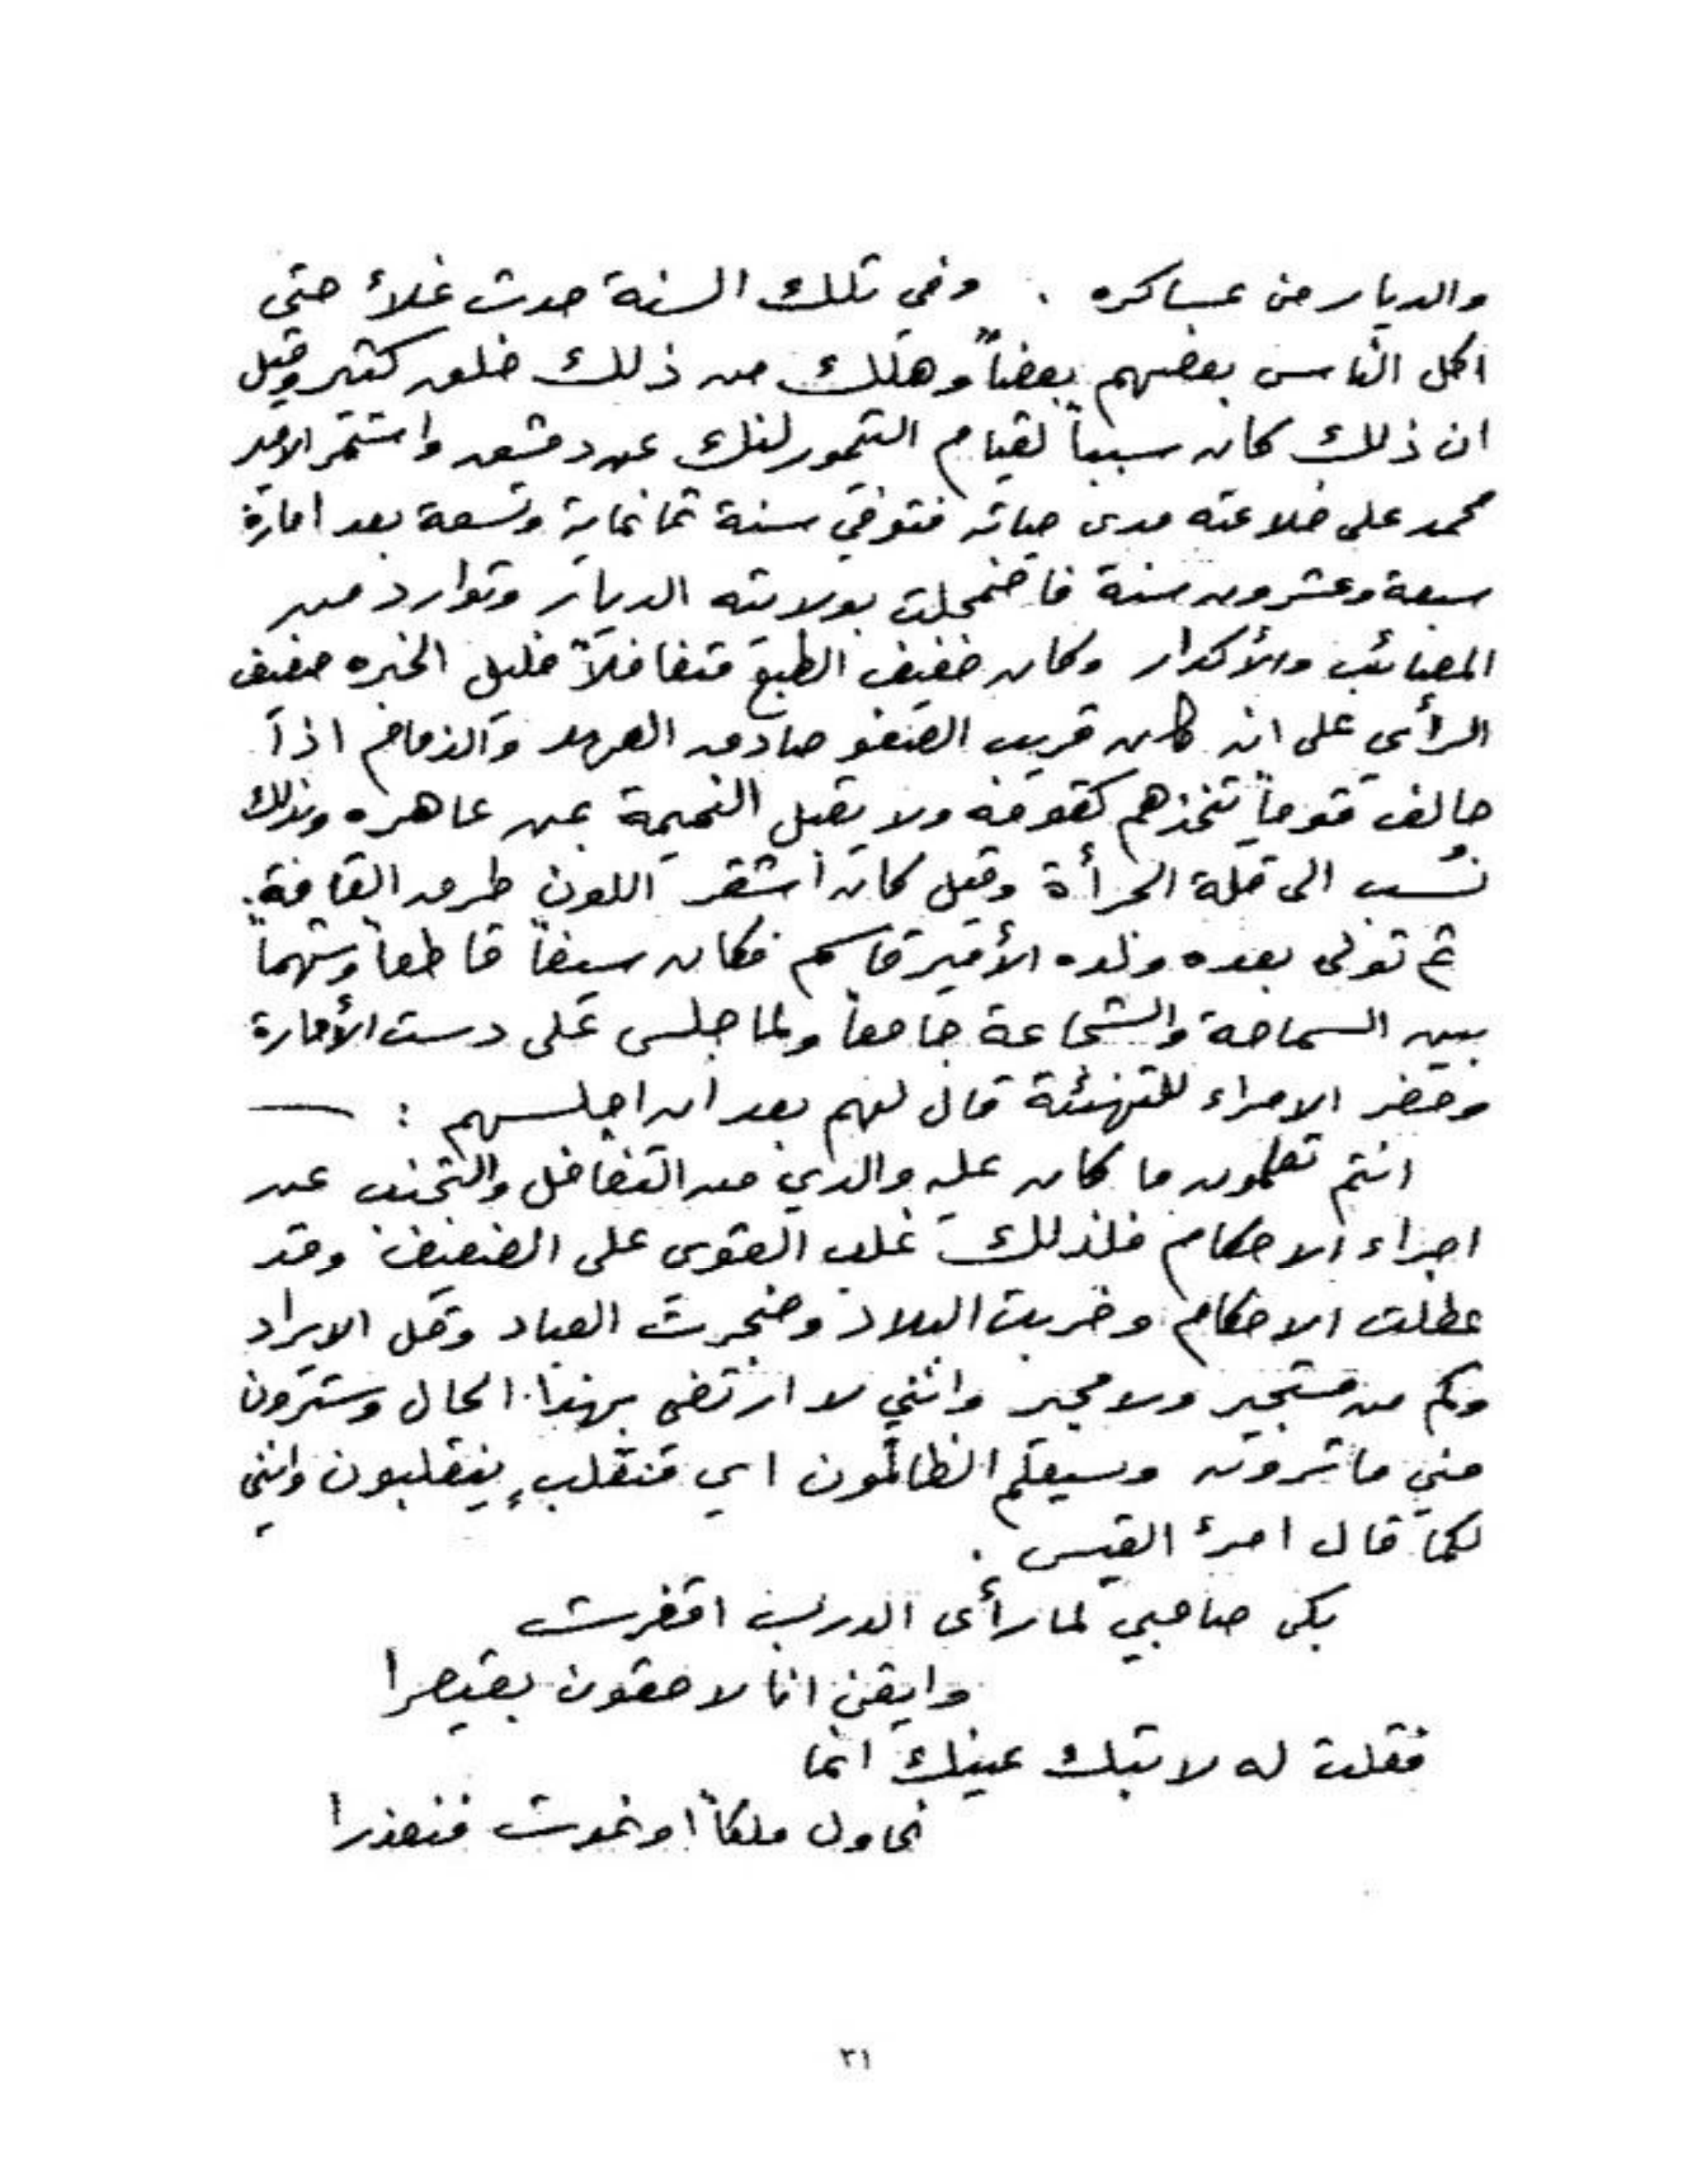 والديار من عساكره . وفي تلك السنة حدث غلأ حتى
اكل النّاس بعضهم بعضاً وهلك من ذلك خلق كثير وقيل
ان ذلك كان سبباً لقيام التيمورلنك عن دمشق واستمر الامير
محمد على خلاعته مدى حياته فتوفي سنة ثمانماية وتسعة بعد امارة
سبعة وعشرون سنة فاضمحلت بولايته الديار وتوارد من
المصائب والأكدار وكان خفيف الطبع متغافلاً قليل الخبره ضعيف
الرأي على انه كان قريب الصفو صادق العهد والذمام اذا
حالف قوماً تخذهم كقومه ولا يقبل النميمة عن عاهره وبذلك
نُسب الى قلة الجرأة وقيل كان أشقر اللون طرق القامة.
ثم تولى بعده ولده الأمير قاسم فكان سيفاً قاطعاً وشهماً
بين السماحة والشجاعة جامعاً ولما جلس على دست الأمارة
وحضر الامراء للتهنئة قال لهم بعد ان اجلسهم : —
انتم تعلمون ما كان عليه والدي من التغافل والتجنب عن
اجراء الاحكام فلذلك غلب القوى على الضعيف وقد
عطلت الاحكام وخربت البلاد وضجرت العباد وقل الايراد
وكم من مستجير ولا مجير وانني لا ارتضى بهذا الحال وسترون
مني ما ترونه وسيعلم الظالمون اي منقلبٍ ينقلبون وانني
لكما قال امرئ القيس .
بكى صاحبي لما رأى الدرب اقفرت
وايقن انا لاحقون بقيصرا
فقلت له لا تبك عينك انما
نحاول ملكاً او نموت فنعذرا
٣١